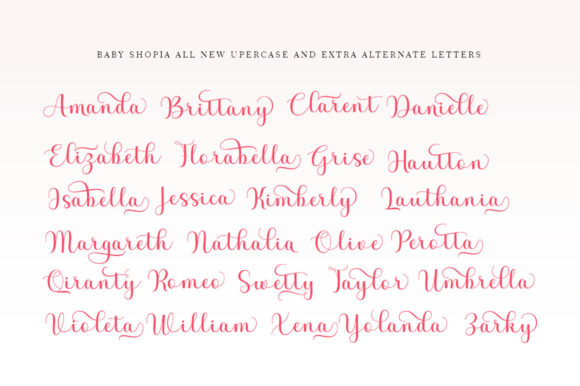 BABY SHOPIA ALL NEW UPERCASE AND EXTRA ALTERNATE LETTERS
Amanda Brittany Clarent Danielle
Elizabeth Florabella Grise Hautton
Isabella Jessica Kimberly Lauthania
Margareth Nathalia Olive Perotta
Qiranty Romeo Swetty Taylor Umbrella
Violeta William Xena Yolanda Zarky